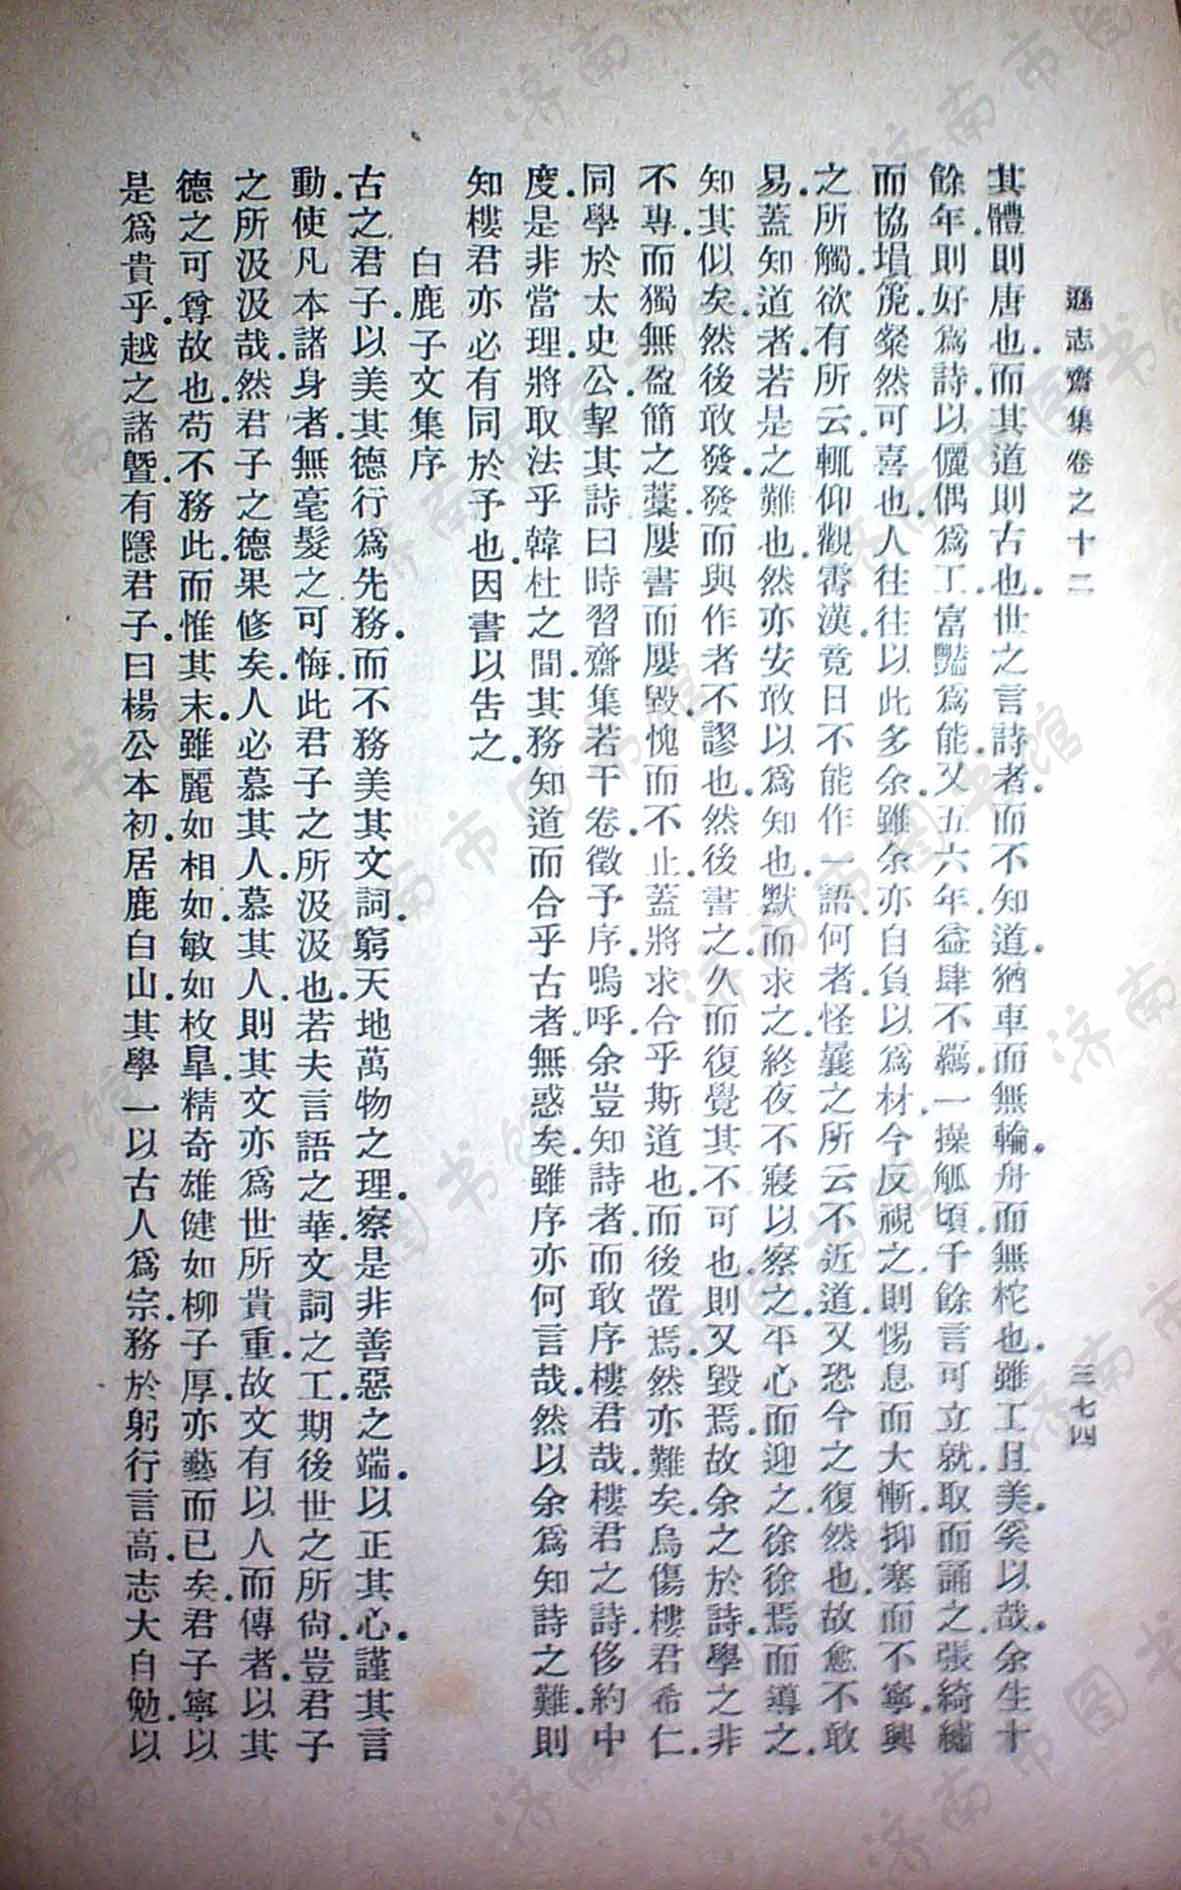 遜志齋集卷之十二　三七四
其體則唐也.而其道則古也.世之言詩者.而不知道.猶車而無輪.舟而無柁也.雖工且美.奚以哉.余生十
餘年.則好爲詩.以儷偶爲工.富豔爲能.又五六年.益肆不羈.一操觚頃.千餘言可立就.取而誦之.張綺繡
而協塤箎.粲然可喜也.人往往以此多余.雖余亦自負以爲材.今反視之.則惕息而大慚.抑塞而不寧.興
之所觸.欲有所云.輒仰觀霄漢.竟日不能作一語.何者.怪曩之所云不近道.又恐今之復然也.故愈不敢
易.蓋知道者.若是之難也.然亦安敢以爲知也.默而求之.終夜不寢以察之.平心而迎之.徐徐焉而導之.
知其似矣.然後敢發.發而與作者不謬也.然後書之.久而復覺其不可也.則又毀焉.故余之於詩.學之非
不專.而獨無盈簡之藁.屢書而屢毀.愧而不止.蓋將求合乎斯道也.而後置焉.然亦難矣.烏傷樓君希仁.
同學於太史公.挈其詩曰時習齋集若干卷.徵予序.嗚呼.余豈知詩者.而敢序樓君哉.樓君之詩.侈約中
度.是非當理.將取法乎韓杜之間.其務知道而合乎古者.無惑矣.雖序亦何言哉.然以余爲知詩之難.則
知樓君亦必有同於予也.因書以告之.
白鹿子文集序
古之君子.以美其德行爲先務.而不務美其文詞.窮天地萬物之理.察是非善惡之端.以正其心.謹其言
動.使凡本諸身者.無毫髮之可悔.此君子之所汲汲也.若夫言語之華.文詞之工.期後世之所尙.豈君子
之所汲汲哉.然君子之德果修矣.人必慕其人.慕其人.則其文亦爲世所貴重.故文有以人而傳者.以其
德之可尊故也.苟不務此.而惟其末.雖麗如相如.敏如枚臯.精奇雄健如柳子厚.亦藝而已矣.君子寧以
是爲貴乎.越之諸曁.有隱君子.曰楊公本初.居鹿白山.其學一以古人爲宗.務於躬行.言高志大.自勉以
济南市图书馆